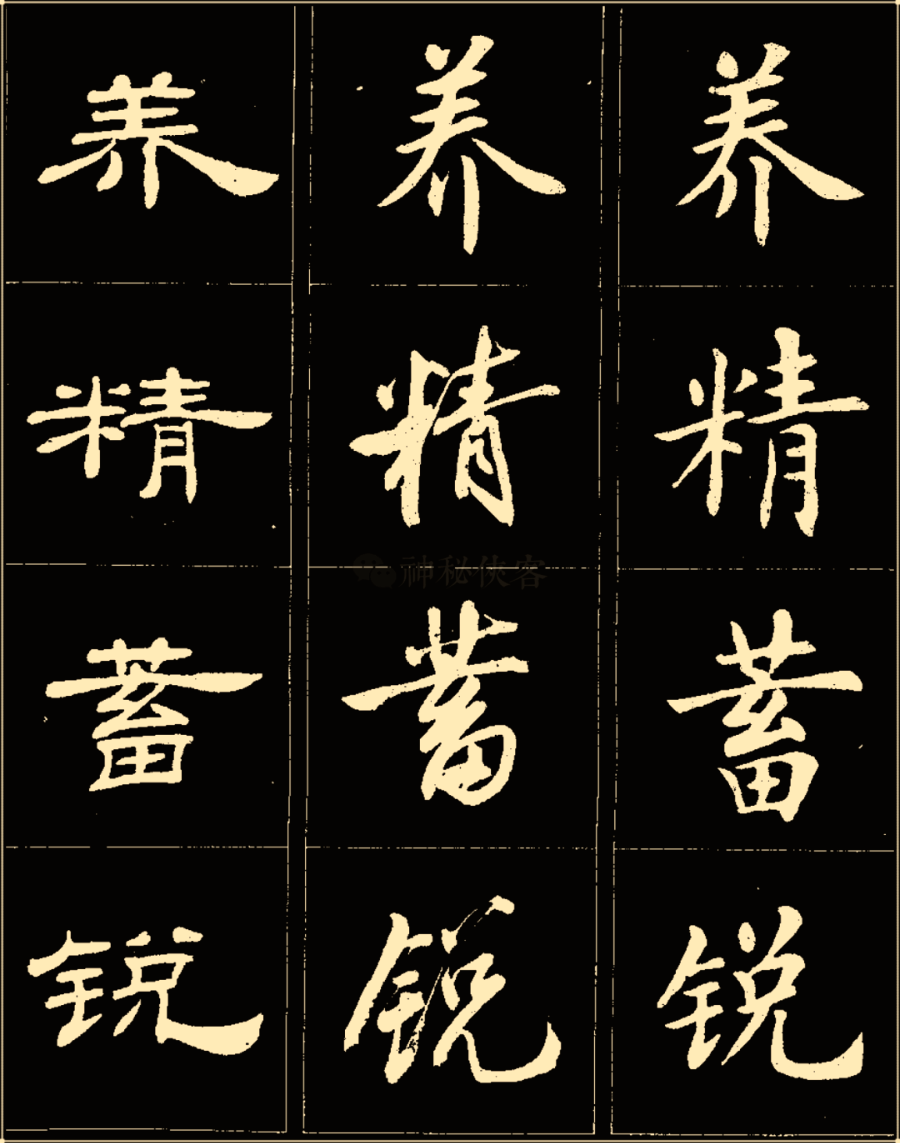 养 养 养
精 精 精
神秘侠客
蓄 蓄 蓄
锐 锐 锐